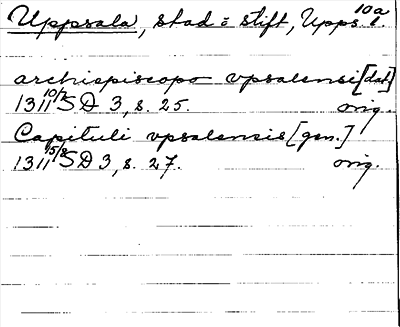 10a
Uppsala, stad o stift, Upps. l.
archiepiscopo vpsalensi [dat]
1311 10/2 SD 3, s. 25. orig.
Capituli vpsalensis [gen.]
1311 15/8 SD 3, s. 27. orig.